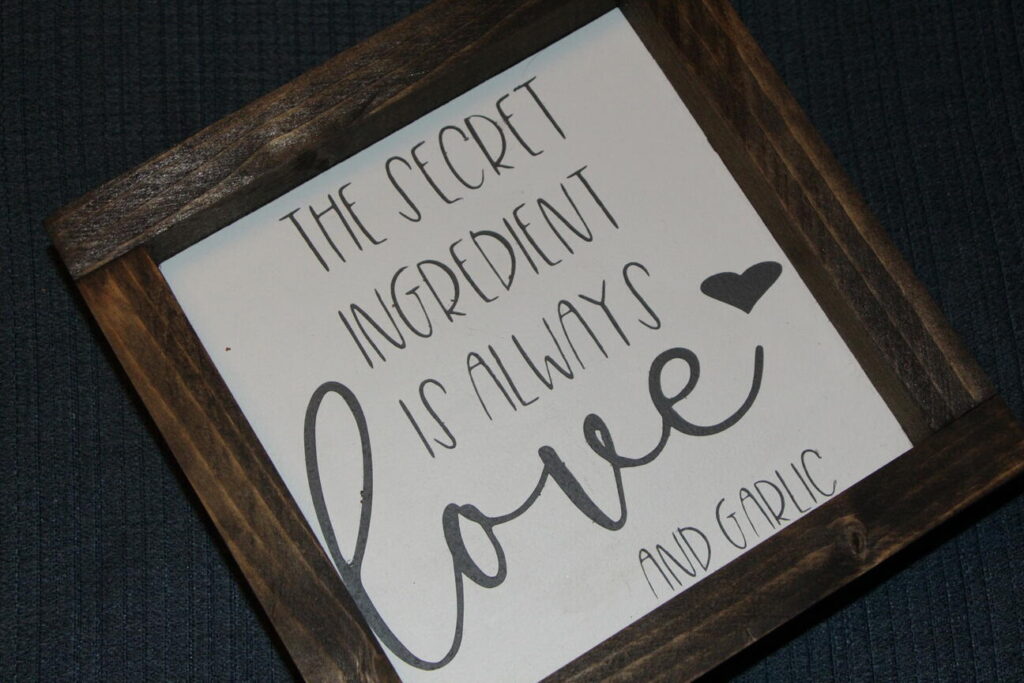 THE SECRET
INGREDIENT
IS ALWAYS
love
AND GARLIC